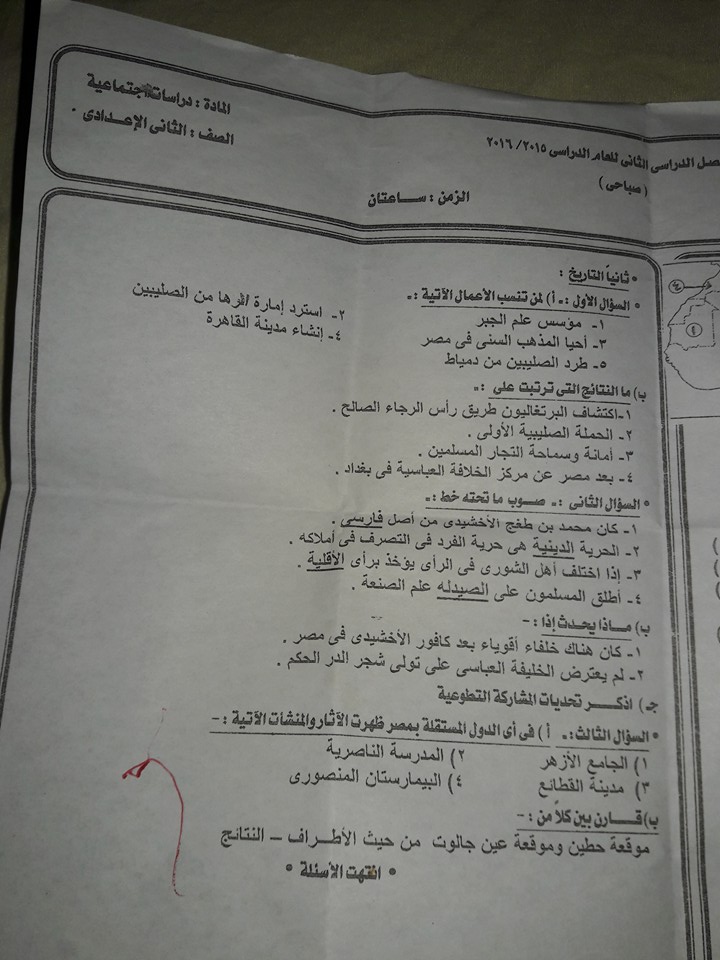 صل الدراسى الثانى للعام الدراسى ٢٠١٥/ ٢٠١٦
( صباحى )
الزمن : ساعتان
المادة : دراسات اجتماعية
الصف : الثانى الإعدادى .
٤
• ثانياً التاريخ :
• السؤال الأول :- أ) لمن تنسب الأعمال الآتية :-
١- مؤسس علم الجبر
٢- استرد إمارة الرها من الصليبين
٣- أحيا المذهب السنى فى مصر
٤- إنشاء مدينة القاهرة
٥- طرد الصليبين من دمياط
ب) ما النتائج التى ترتبت على :-
١- اكتشاف البرتغاليون طريق رأس الرجاء الصالح .
٢- الحملة الصليبية الأولى .
٣- أمانة وسماحة التجار المسلمين .
٤- بعد مصر عن مركز الخلافة العباسية فى بغداد .
• السؤال الثانى :- صوب ما تحته خط :-
١- كان محمد بن طغج الأخشيدى من أصل فارسى .
٢- الحرية الدينية هى حرية الفرد فى التصرف فى أملاكه .
٣- إذا اختلف أهل الشورى فى الرأى يؤخذ برأى الأقلية .
٤- أطلق المسلمون على الصيدله علم الصنعة .
ب) ماذا يحدث إذا : -
١- كان هناك خلفاء أقوياء بعد كافور الأخشيدى فى مصر .
٢- لم يعترض الخليفة العباسى على تولى شجر الدر الحكم .
جـ) اذكر تحديات المشاركة التطوعية
• السؤال الثالث :- أ ) فى أى الدول المستقلة بمصر ظهرت الآثار والمنشآت الآتية : -
١) الجامع الأزهر ٢) المدرسة الناصرية
٣) مدينة القطائع ٤) البيمارستان المنصورى
ب) قارن بين كلاً من : -
موقعة حطين وموقعة عين جالوت من حيث الأطراف – النتائج
• انتهت الأسئلة •